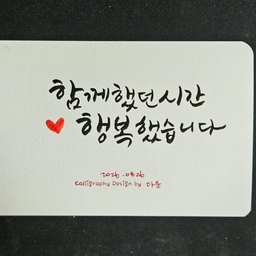 함께했던시간
행복했습니다
2026.04.26
Calligraphy Design by 다운